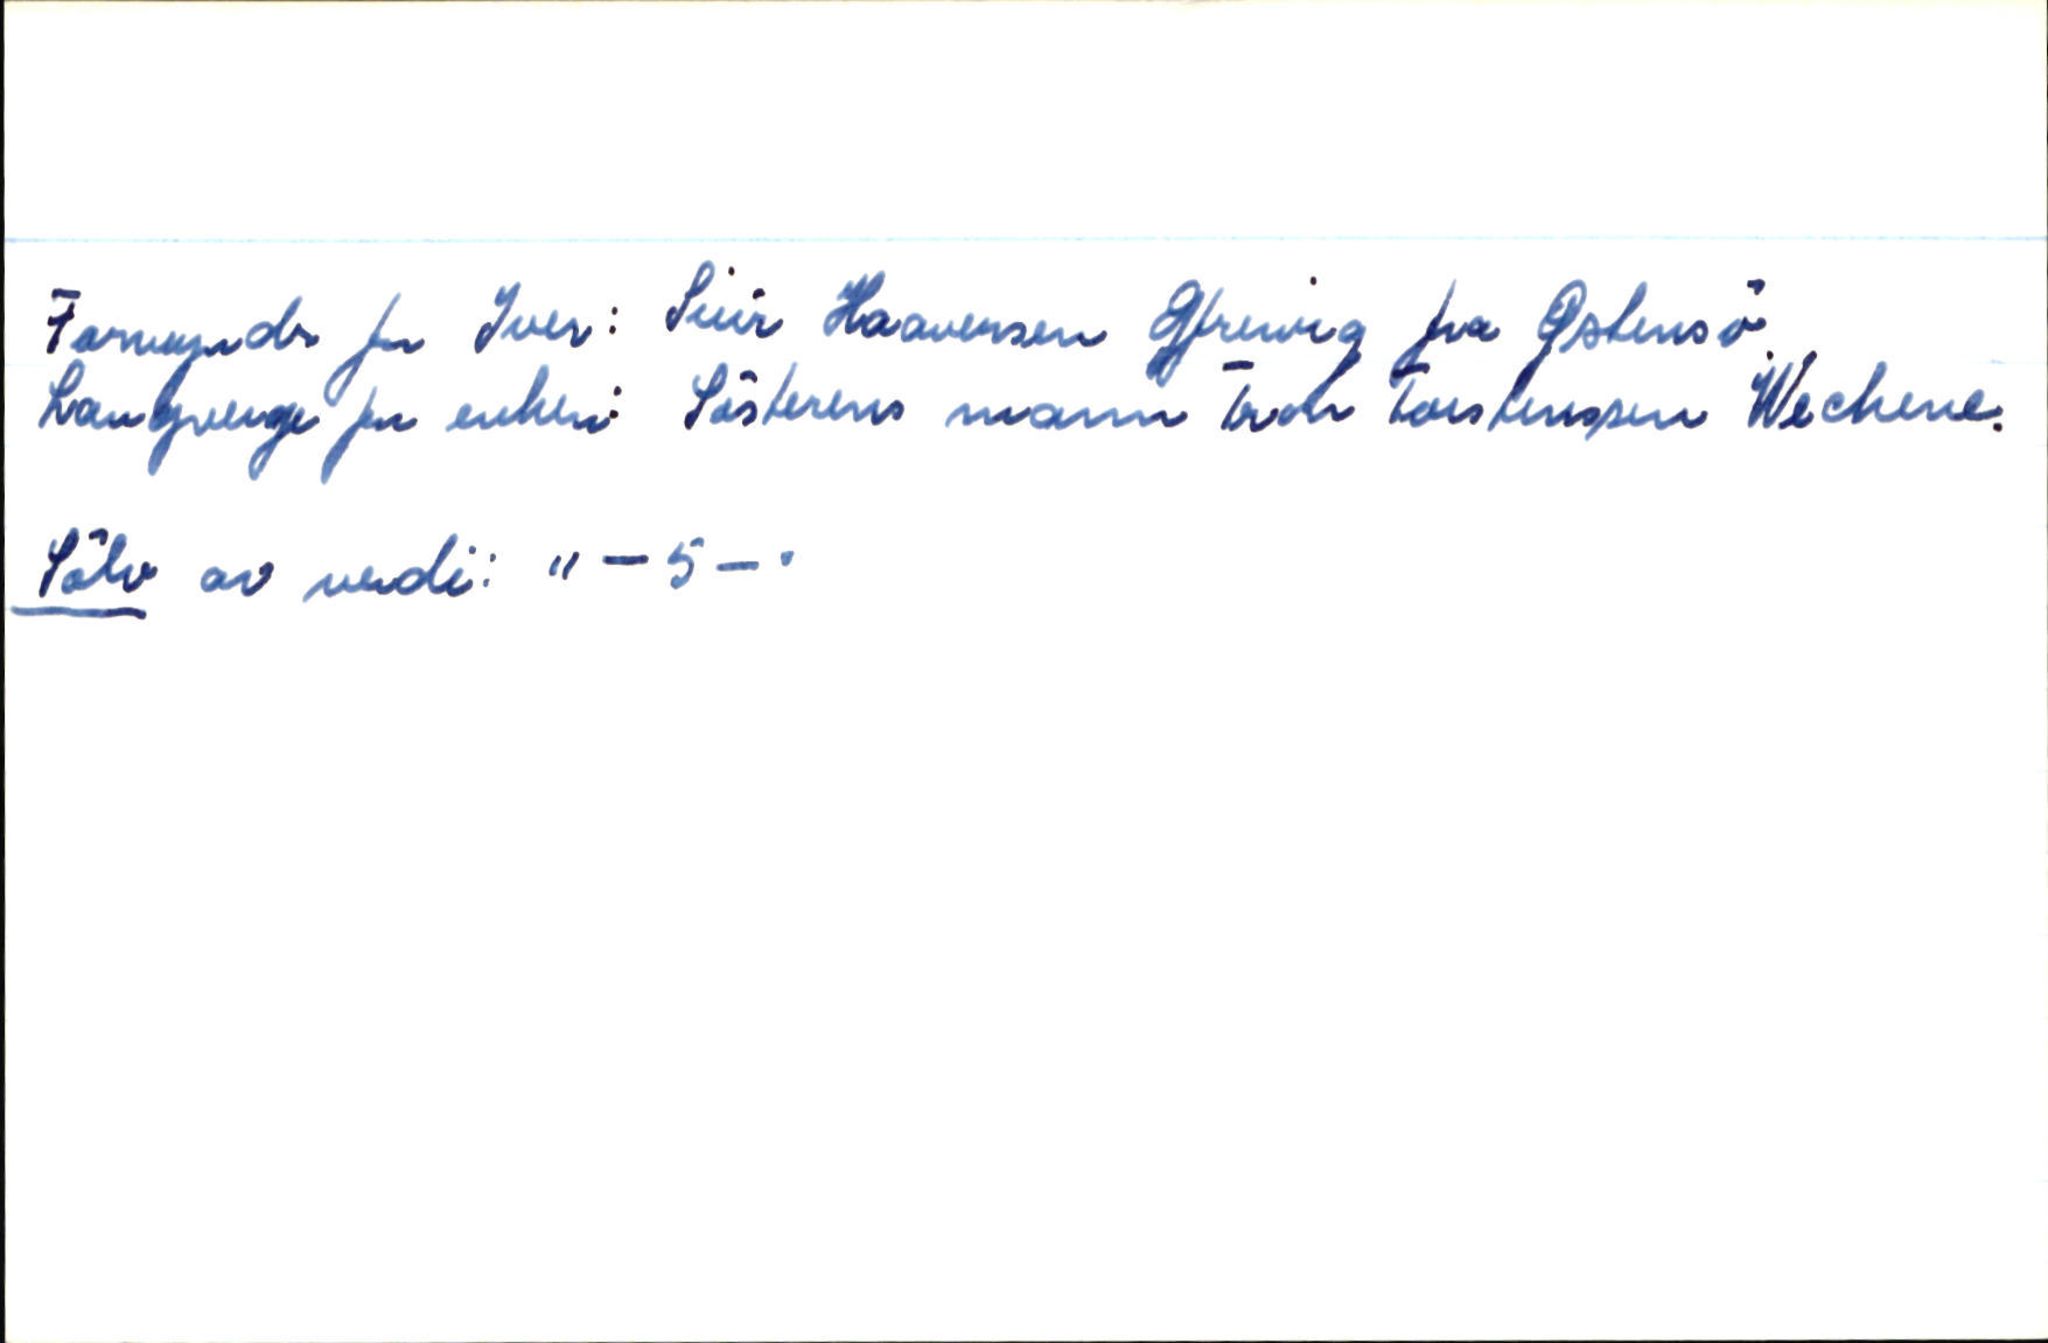 Formynder for Iver: Siur Haavensen Giervig fra Østensö.
Laugverge for enken: Sösterens mann Tron Torstenssen Wechene.
Sölv av verdi: " – 5 – "